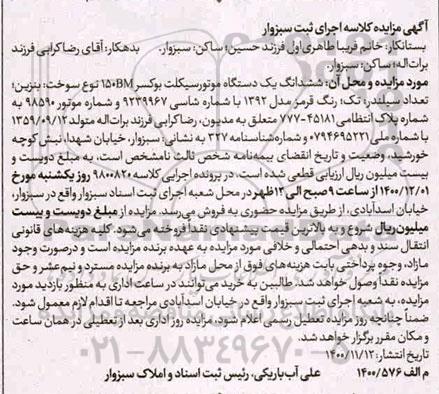 آگهی مزایده کلاسه اجرای ثبت سبزوار
بستانکار: خانم فریبا طاهری اول فرزند حسین؛ ساکن: سبزوار.     بدهکار: آقای رضا کرابی فرزند
برات‌اله؛ ساکن: سبزوار.
مورد مزایده و محل آن: ششدانگ یک دستگاه موتورسیکلت بوکسر 150BM نوع سوخت: بنزین؛
تعداد سیلندر: تک؛ رنگ قرمز مدل ۱۳۹۲ با شماره شاسی ۹۲۳۹۹۶۷ و شماره موتور ۹۸۵۹۰ به
شماره پلاک انتظامی ۴۵۱۸۱-۷۷۷ متعلق به مدیون، رضا کرابی فرزند برات‌اله متولد ۱۳۵۹/۰۹/۱۲
با شماره ملی ۰۷۹۴۶۹۵۲۲۱ و شماره شناسنامه ۳۲۷ به نشانی: سبزوار، خیابان شهدا، نبش کوچه
خورشید، وضعیت و تاریخ انقضای بیمه‌نامه شخص ثالث نامشخص است، به مبلغ دویست و
بیست میلیون ریال ارزیابی قطعی شده است، در پرونده اجرایی کلاسه ۹۸۰۰۸۲۰ روز یکشنبه مورخ
۱۴۰۰/۱۲/۰۱ از ساعت ۹ صبح الی ۱۲ ظهر در محل شعبه اجرای ثبت اسناد سبزوار واقع در سبزوار،
خیابان اسدآبادی، از طریق مزایده حضوری به فروش می‌رسد. مزایده از مبلغ دویست و بیست
میلیون ریال شروع و به بالاترین قیمت پیشنهادی نقداً فروخته می‌شود. کلیه هزینه‌های قانونی
انتقال سند و بدهی احتمالی و خلافی مورد مزایده به عهده برنده مزایده است و درصورت وجود
مازاد، وجوه پرداختی بابت هزینه‌های فوق از محل مازاد به برنده مزایده مسترد و نیم عشر و حق
مزایده نقداً وصول خواهد شد. طالبین به خرید می‌توانند در ساعت اداری به منظور بازدید مورد
مزایده، به شعبه اجرای ثبت سبزوار واقع در خیابان اسدآبادی مراجعه تا اقدام لازم معمول شود.
ضمناً چنانچه روز مزایده تعطیل رسمی اعلام شود، مزایده روز اداری بعد از تعطیلی در همان ساعت
و مکان مقرر برگزار خواهد شد.
تاریخ انتشار: ۱۴۰۰/۱۱/۱۲
م الف ۱۴۰۰/۵۷۶     علی آب‌باریکی، رئیس ثبت اسناد و املاک سبزوار
۰۲۱-۸۸۳۴۹۶۷۰-۵